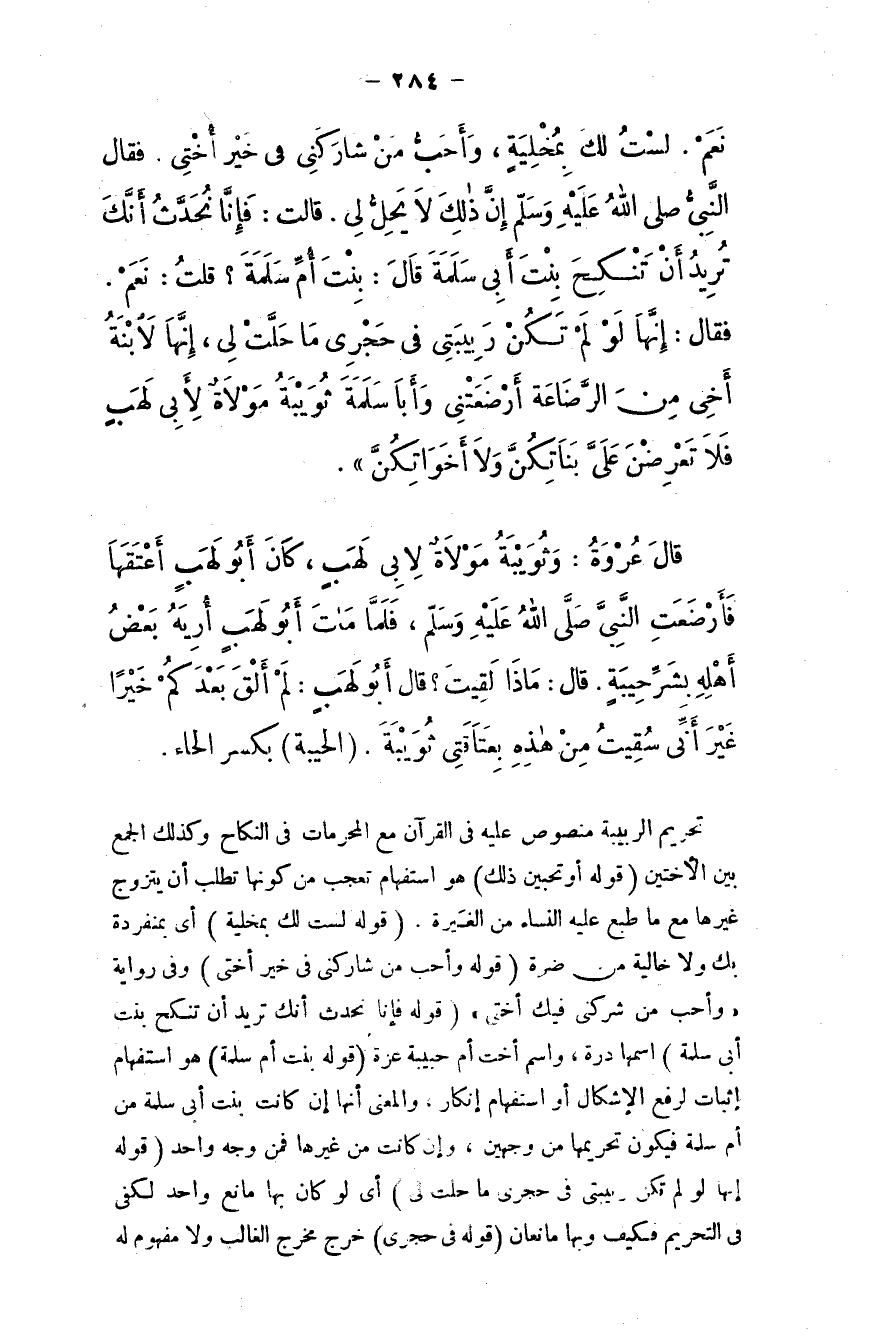 – ٢٨٤ –
نَعَمْ . لسْتُ لكَ بِمُخْلِيَةٍ ، وَأَحَبُّ مَنْ شارَكَنِى فى خَيْرٍ أُخْتِى . فقال
النَّبِىُّ صلى اللهُ عَلَيْهِ وَسَلّم إِنَّ ذٰلِكَ لاَ يَحِلُّ لِى . قالت : فَإِنَّا نُحَدَّثُ أَنَّكَ
تُرِيدُ أَنْ تَنْكِحَ بِنْتَ أَبِى سَلَمَةَ قَالَ : بِنْتَ أُمِّ سَلَمَةَ ؟ قلتُ : نَعَمْ .
فقال : إِنَّهَا لَوْ لَمْ تَكُنْ رَبِيبَتِى فى حَجْرِى مَا حَلَّتْ لِى ، إِنَّهَا لَاُبْنَةُ
أَخِى مِنَ الرَّضَاعَة أَرْضَعَتْنِى وَأَبَا سَلَمَةَ ثُوَيْبَةُ مَوْلَاةٌ لِأَبِى لَهَبٍ
فَلاَ تَعْرِضْنَ عَلَىَّ بَنَاتِكُنَّ وَلاَ أَخَوَاتِكُنَّ » .
قالَ عُرْوَةُ : وَثُوَيْبَةُ مَوْلَاةٌ لِابِى لَهَبٍ ، كَانَ أَبُو لَهَبٍ أَعْتَقَهَا
فَأَرْضَعَتِ النَّبِىَّ صَلَّى اللهُ عَلَيْهِ وَسَلّم ، فَلَمَّا مَاتَ أَبُو لَهَبٍ أُرِيَهُ بَعْضُ
أَهْلِهِ بِشَرِّ حِيبَةٍ . قال : مَاذَا لَقِيتَ ؟ قال أَبُو لَهَبٍ : لَمْ أَلْقَ بَعْدَكُمْ خَيْرًا
غَيْرَ أَنِّى سُقِيتُ مِنْ هٰذِهِ بِعَتَاقَتِى ثُوَيْبَةَ . (الحيبة) بكسر الحاء .
تحريم الربيبة منصوص عليه فى القرآن مع المحرمات فى النكاح وكذلك الجمع
بين الأختين (قوله أوتحبين ذلك) هو استفهام تعجب من كونها تطلب أن يتزوج
غيرها مع ما طبع عليه النساء من الغيرة . ( قوله لست لك بمخلية ) أى بمنفردة
بك ولا خالية من ضرة ( قوله وأحب من شاركنى فى خير أختى ) وفى رواية
« وأحب من شركنى فيك أختى » ( قوله فإنا نحدث أنك تريد أن تنكح بنت
أبى سلمة ) اسمها درة ، واسم أخت أم حبيبة عزة (قوله بنت أم سلمة) هو استفهام
إثبات لرفع الإشكال أو استفهام إنكار ، والمعنى أنها إن كانت بنت أبى سلمة من
أم سلمة فيكون تحريمها من وجهين ، وإن كانت من غيرها فمن وجه واحد ( قوله
إنها لو لم تكن ربيبتى فى حجرى ما حلت لى ) أى لو كان بها مانع واحد لكفى
فى التحريم فكيف وبها مانعان (قوله فى حجرى) خرج مخرج الغالب ولا مفهوم له